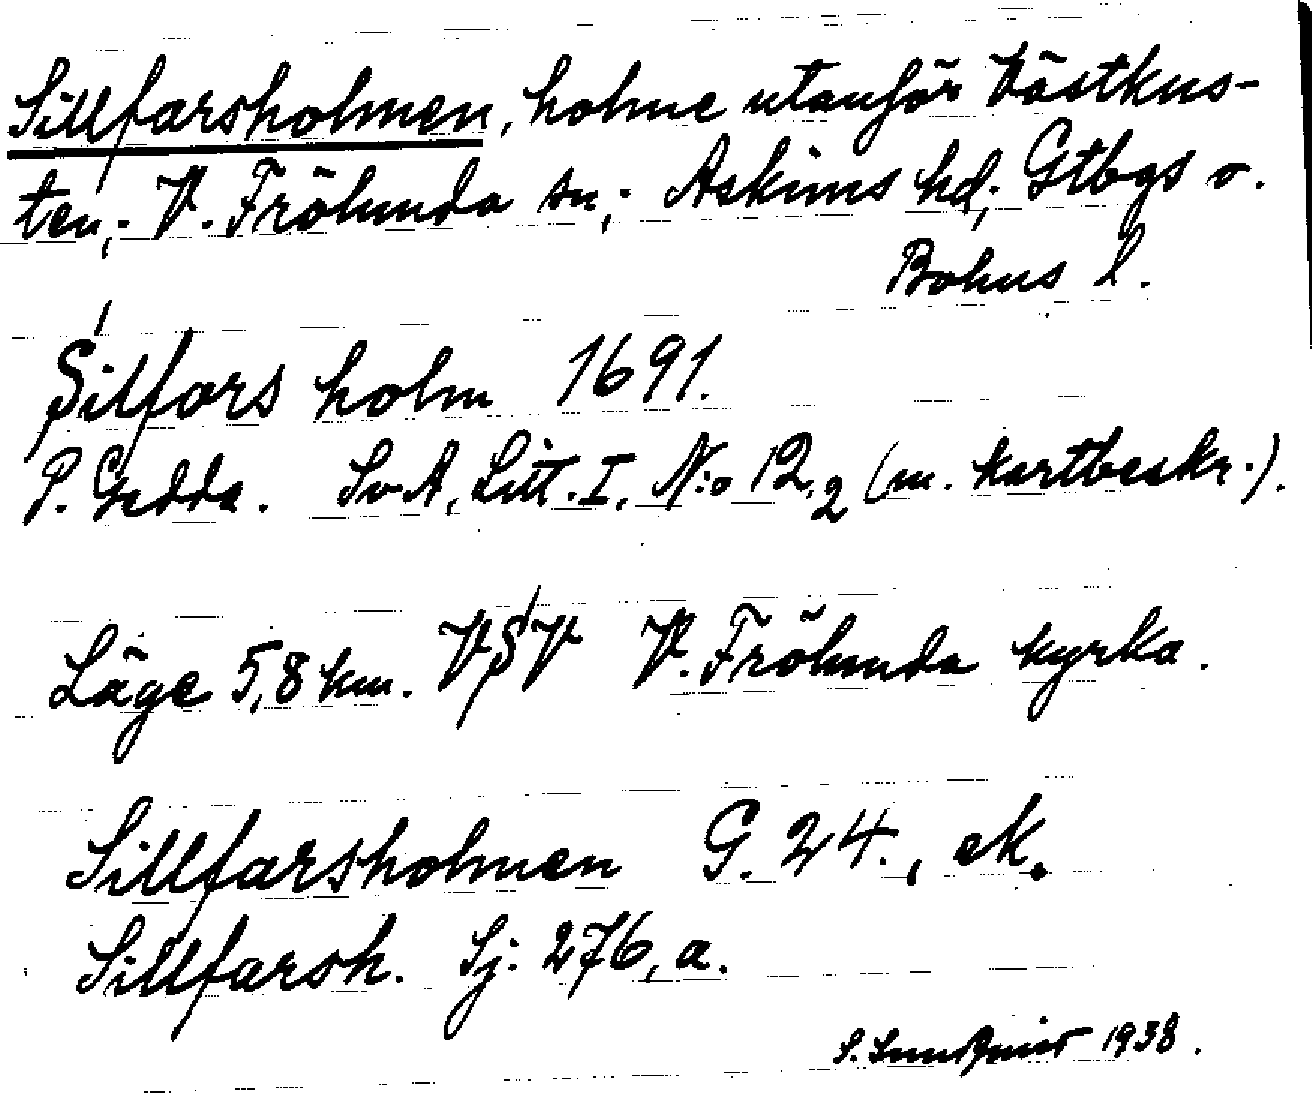 Sillfarsholmen, holme utanför Västkus-
ten; V. Frölunda sn; Askims hd; Gtbgs o.
Bohus l.
Silfars holm 1691.
P. Gedda. SvA, Litt. I, N:o 12,2 (m. kartbeskr.).
Läge 5,8 km. VSV V. Frölunda kyrka.
Sillfarsholmen G. 24., ek.
Sillfarsh. Sj: 276, a.
S. 1938.